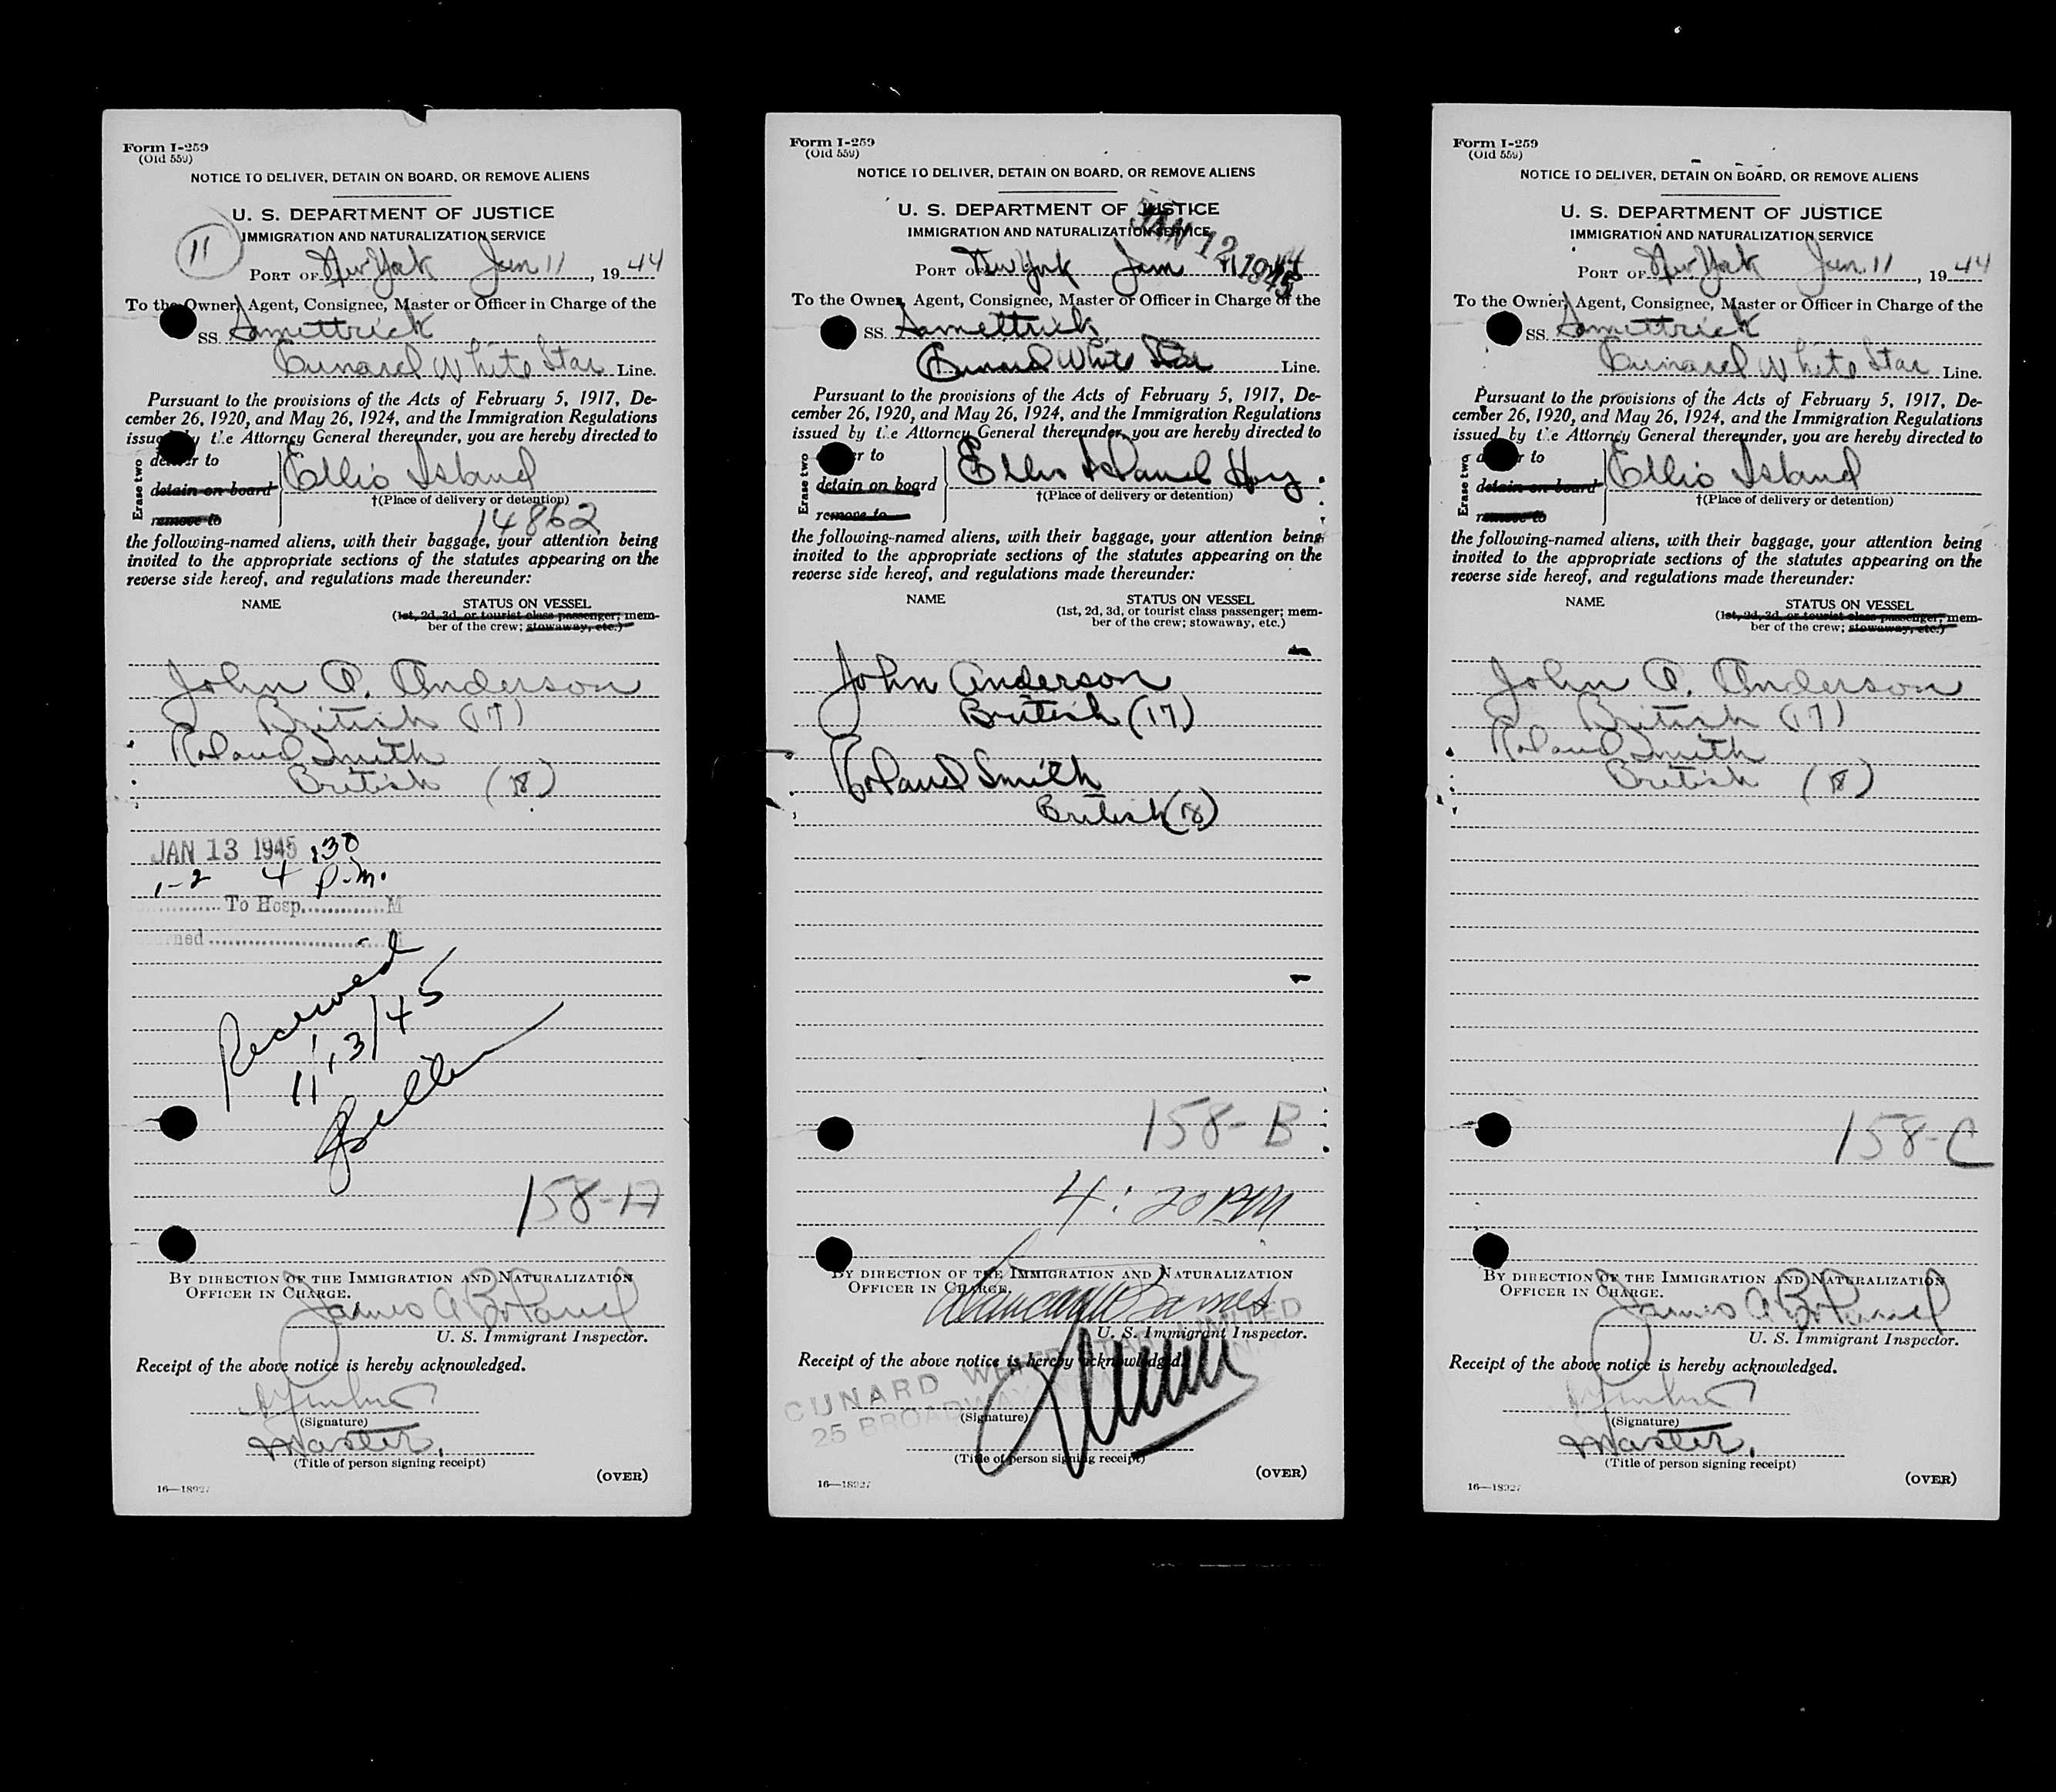 Form I-259
(Old 559)
NOTICE TO DELIVER, DETAIN ON BOARD, OR REMOVE ALIENS
U. S. DEPARTMENT OF JUSTICE
IMMIGRATION AND NATURALIZATION SERVICE
11
PORT OF New York Jan 11, 1944
To the Owner, Agent, Consignee, Master or Officer in Charge of the
SS. Samettrick
Cunard White Star Line.
Pursuant to the provisions of the Acts of February 5, 1917, De-
cember 26, 1920, and May 26, 1924, and the Immigration Regulations
issued by the Attorney General thereunder, you are hereby directed to
Erase two
deliver to
detain on board
remove to
Ellis Island
†(Place of delivery or detention)
14862
the following-named aliens, with their baggage, your attention being
invited to the appropriate sections of the statutes appearing on the
reverse side hereof, and regulations made thereunder:
NAME STATUS ON VESSEL
(1st, 2d, 3d, or tourist class passenger; mem-
ber of the crew; stowaway, etc.)
John A. Anderson
British (17)
Roland Smith
British (18)
JAN 13 1945 :30
1-2 4 P.M.
To Hosp. M
Received
1/13/45
158-A
BY DIRECTION OF THE IMMIGRATION AND NATURALIZATION
OFFICER IN CHARGE.
James A Boland
U. S. Immigrant Inspector.
Receipt of the above notice is hereby acknowledged.
(Signature)
Master.
(Title of person signing receipt)
(OVER)
16—18927
Form I-259
(Old 559)
NOTICE TO DELIVER, DETAIN ON BOARD, OR REMOVE ALIENS
U. S. DEPARTMENT OF JUSTICE
IMMIGRATION AND NATURALIZATION SERVICE
JAN 12 1945
PORT OF New York Jan 11 1944
To the Owner, Agent, Consignee, Master or Officer in Charge of the
SS. Samettrick
Cunard White Star Line.
Pursuant to the provisions of the Acts of February 5, 1917, De-
cember 26, 1920, and May 26, 1924, and the Immigration Regulations
issued by the Attorney General thereunder, you are hereby directed to
Erase two
deliver to
detain on board
remove to
Ellis Island
†(Place of delivery or detention)
the following-named aliens, with their baggage, your attention being
invited to the appropriate sections of the statutes appearing on the
reverse side hereof, and regulations made thereunder:
NAME STATUS ON VESSEL
(1st, 2d, 3d, or tourist class passenger; mem-
ber of the crew; stowaway, etc.)
John Anderson
British (17)
Roland Smith
British (18)
158-B
4:20 PM
BY DIRECTION OF THE IMMIGRATION AND NATURALIZATION
OFFICER IN CHARGE.
U. S. Immigrant Inspector.
Receipt of the above notice is hereby acknowledged.
CUNARD WHITE STAR LIMITED
25 BROADWAY
(Signature)
(Title of person signing receipt)
(OVER)
16—18927
Form I-259
(Old 559)
NOTICE TO DELIVER, DETAIN ON BOARD, OR REMOVE ALIENS
U. S. DEPARTMENT OF JUSTICE
IMMIGRATION AND NATURALIZATION SERVICE
PORT OF New York Jan. 11, 1944
To the Owner, Agent, Consignee, Master or Officer in Charge of the
SS. Samettrick
Cunard White Star Line.
Pursuant to the provisions of the Acts of February 5, 1917, De-
cember 26, 1920, and May 26, 1924, and the Immigration Regulations
issued by the Attorney General thereunder, you are hereby directed to
Erase two
deliver to
detain on board
remove to
Ellis Island
†(Place of delivery or detention)
the following-named aliens, with their baggage, your attention being
invited to the appropriate sections of the statutes appearing on the
reverse side hereof, and regulations made thereunder:
NAME STATUS ON VESSEL
(1st, 2d, 3d, or tourist class passenger; mem-
ber of the crew; stowaway, etc.)
John A. Anderson
British (17)
Roland Smith
British (18)
158-C
BY DIRECTION OF THE IMMIGRATION AND NATURALIZATION
OFFICER IN CHARGE.
James A Boland
U. S. Immigrant Inspector.
Receipt of the above notice is hereby acknowledged.
(Signature)
Master.
(Title of person signing receipt)
(OVER)
16—18927